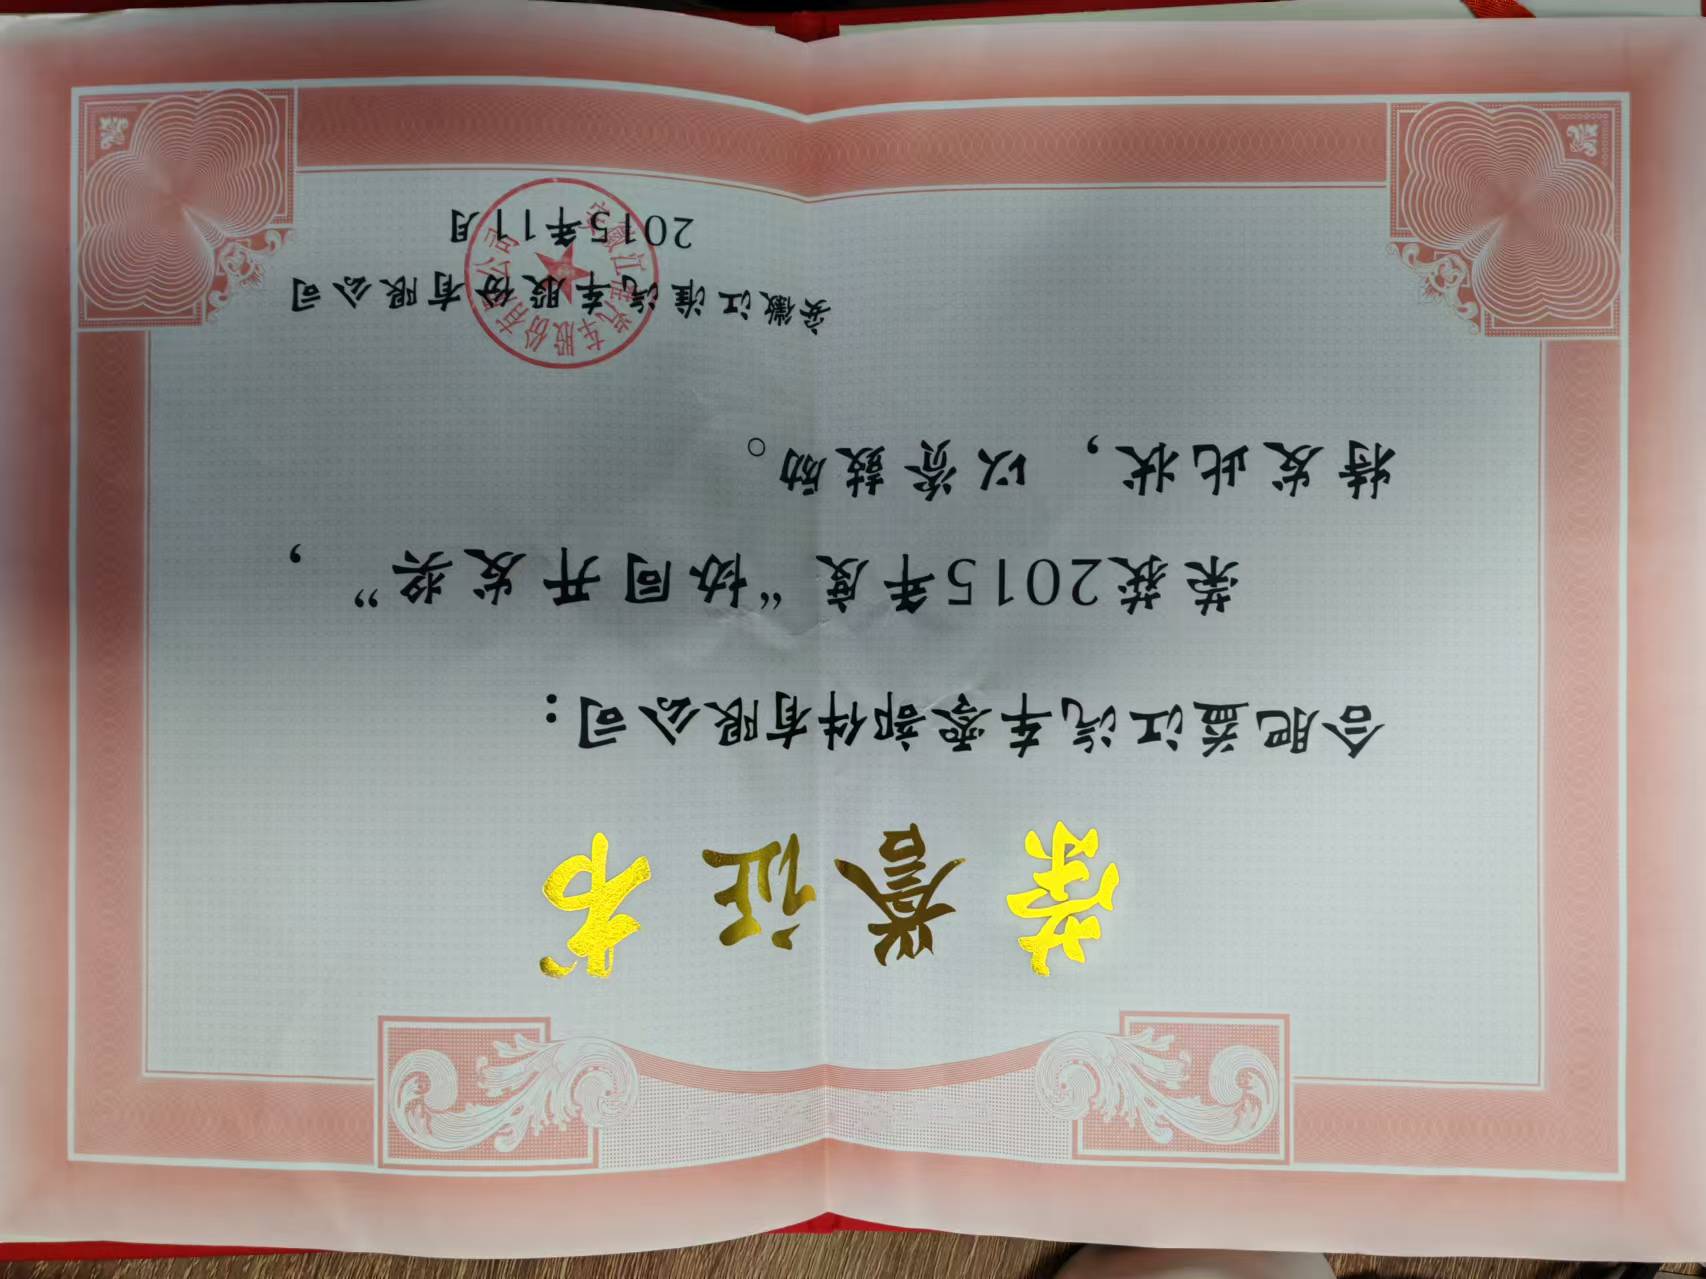 荣誉证书
合肥益江汽车零部件有限公司：
荣获2015年度“协同开发奖”，
特发此状，以资鼓励。
安徽江淮汽车股份有限公司
2015年11月
安徽江淮汽车股份有限公司